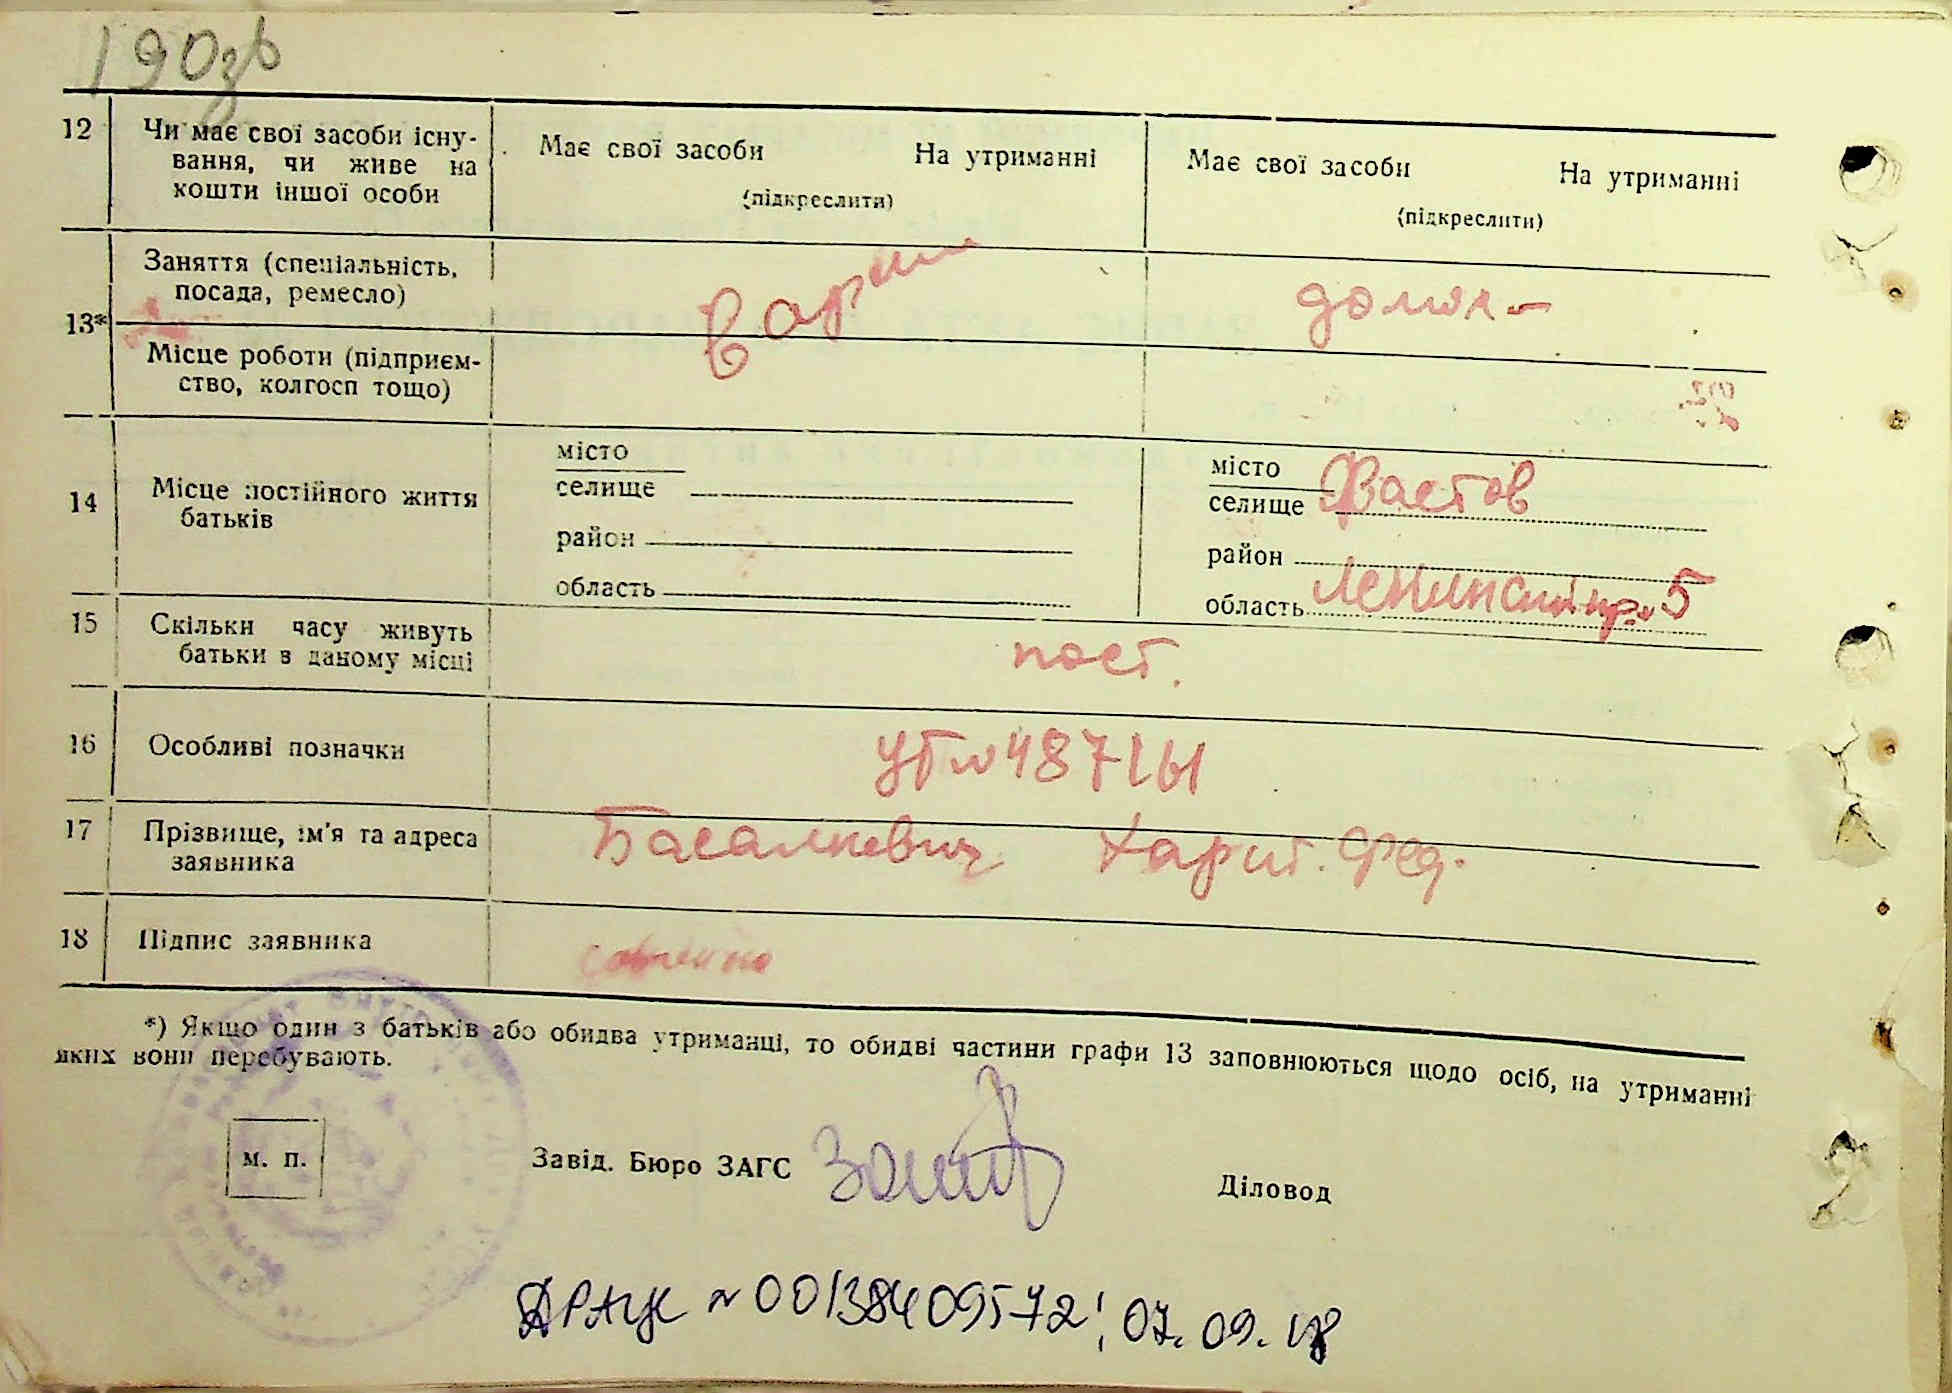 190зв
12 Чи має свої засоби існу-
вання, чи живе на
кошти іншої особи
Має свої засоби На утриманні
(підкреслити)
Має свої засоби На утриманні
(підкреслити)
13*
Заняття (спеціальність,
посада, ремесло)
домох-
Місце роботи (підприєм-
ство, колгосп тощо)
14 Місце постійного життя
батьків
місто
селище
район
область
місто
селище Фастов
район
область Ленинский пр. 5
15 Скільки часу живуть
батьки в даному місці
пост.
16 Особливі позначки
17 Прізвище, ім'я та адреса
заявника
Басалкевич Харит. Фед.
18 Підпис заявника
*) Якщо один з батьків або обидва утриманці, то обидві частини графи 13 заповнюються щодо осіб, на утриманні
яких вони перебувають.
м. п.
Завід. Бюро ЗАГС
Діловод
ДРАЦС №00138409572; 07.09.18